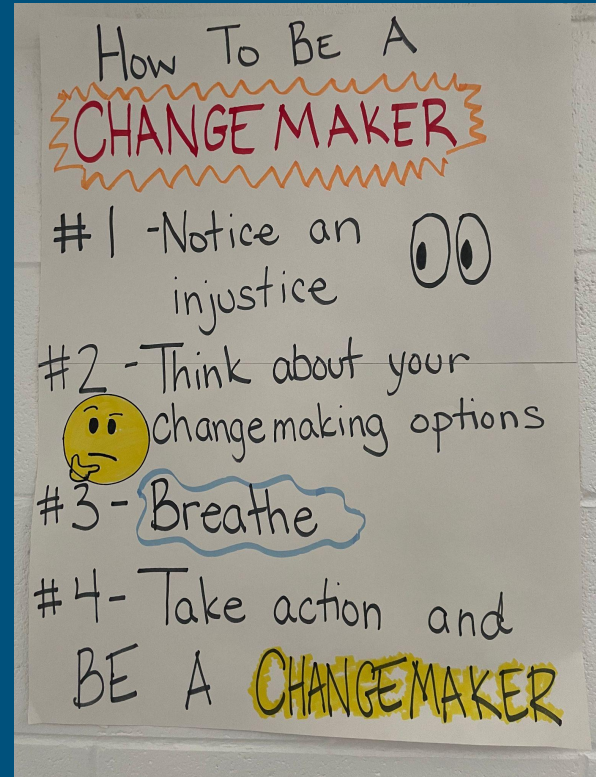 How To Be A
CHANGE MAKER
#1 - Notice an
injustice
#2 - Think about your
changemaking options
#3 - Breathe
#4 - Take action and
BE A CHANGEMAKER